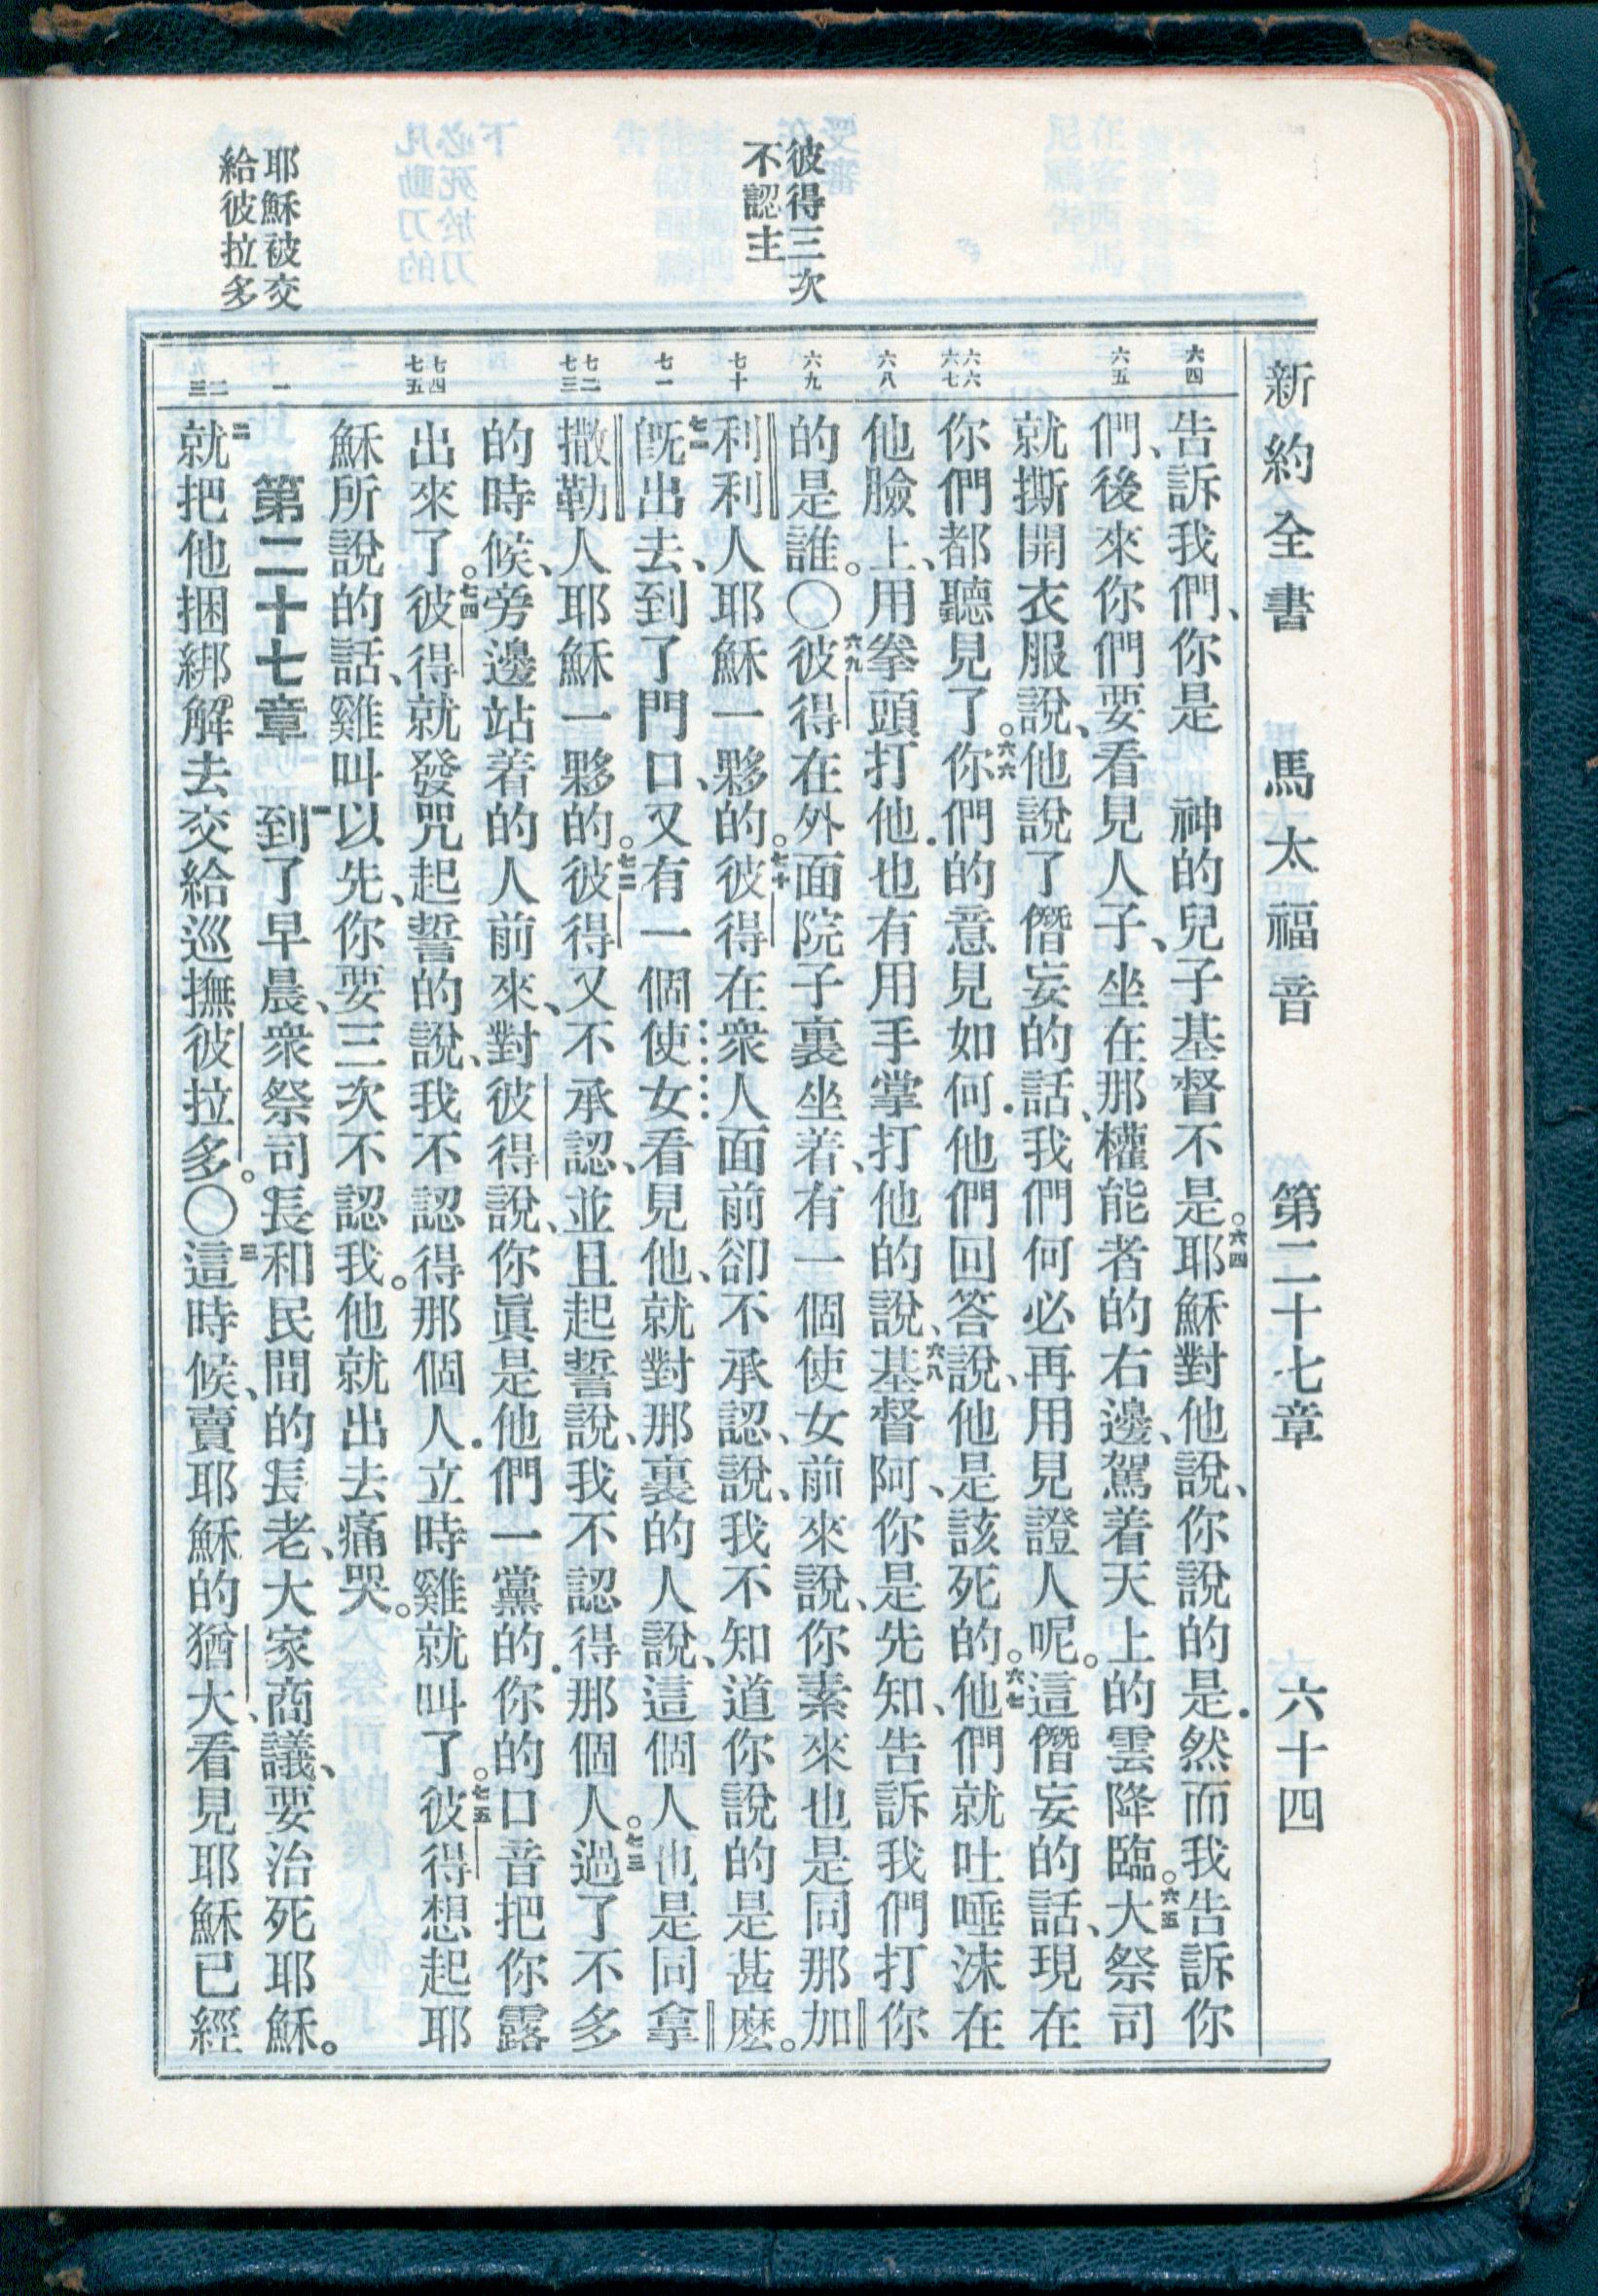 新約全書 馬太福音 第二十七章 六十四
彼得三次
不認主
耶穌被交
給彼拉多
六四
六五
六六
六七
六八
六九
七十
七一
七二
七三
七四
七五
一
二
三
告訴我們、你是 神的兒子基督不是。六四耶穌對他說、你說的是．然而我告訴你
們、後來你們要看見人子、坐在那權能者的右邊、駕着天上的雲降臨。六五大祭司
就撕開衣服說、他說了僭妄的話、我們何必再用見證人呢。這僭妄的話、現在
你們都聽見了。六六你們的意見如何．他們回答說、他是該死的。六七他們就吐唾沫在
他臉上、用拳頭打他．也有用手掌打他的說、六八基督阿、你是先知、告訴我們打你
的是誰。〇六九彼得在外面院子裏坐着、有一個使女前來說、你素來也是同那加
利利人耶穌一夥的。七十彼得在衆人面前卻不承認、說、我不知道你說的是甚麽。
七一旣出去、到了門口、又有一個使女看見他、就對那裏的人說、這個人也是同拿
撒勒人耶穌一夥的。七二彼得又不承認、並且起誓說、我不認得那個人。七三過了不多
的時候、旁邊站着的人前來、對彼得說、你眞是他們一黨的．你的口音把你露
出來了。七四彼得就發咒起誓的說、我不認得那個人．立時雞就叫了。七五彼得想起耶
穌所說的話、雞叫以先、你要三次不認我。他就出去痛哭。
第二十七章 一到了早晨、衆祭司長和民間的長老、大家商議、要治死耶穌。
二就把他捆綁解去交給巡撫彼拉多。〇三這時候、賣耶穌的猶大、看見耶穌已經